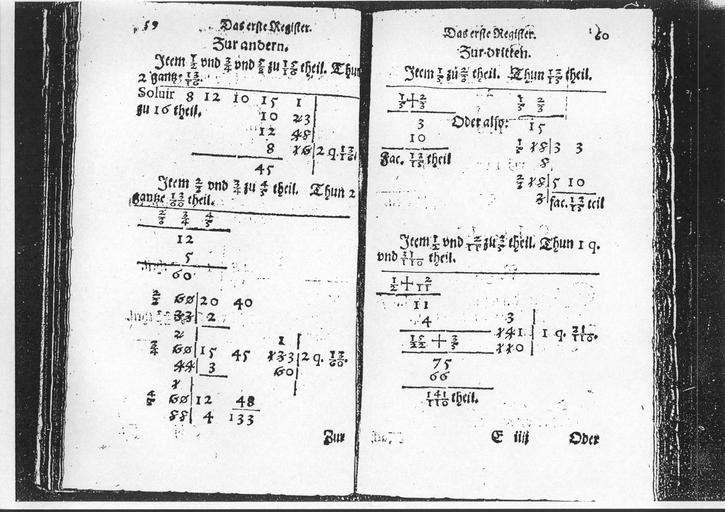 59 Das erste Register.
Zur andern.
Item 1/2 vnd 3/4 vnd zu theil. Thun
2 gantz
Soluir 8 12 10 15 1
zu 16 theil. 10 23
12 48
8 16 2 q.
45
Item 2/3 vnd 3/4 zu 4/5 theil. Thun 2
gantze 13/60 theil.
2/3 3/4 4/5
12
5
60
2/3 60 20 40
33 2
2
3/4 60 15 45
44 3
1
133 2 q. 13/60.
60
4/5 60 12 48
55 4 133
Zur
Das erste Register. 60
Zur dritten.
Item 1/5 zu 2/3 theil. Thun 13/15 theil.
1/5 + 2/3 1/5 2/3
3 Oder also: 15
10
Fac. 13/15 theil
1/5 15 3 3
2/3 15 5 10
3 fac. 13/15 teil
Item 1/2 vnd 2/11 zu 3/5 theil. Thun 1 q.
vnd 31/110 theil.
1/2 + 2/11
11
4
15/22 + 3/5
3
141 1 q. 31/110.
110
75
66
141/110 theil.
E iiij Oder